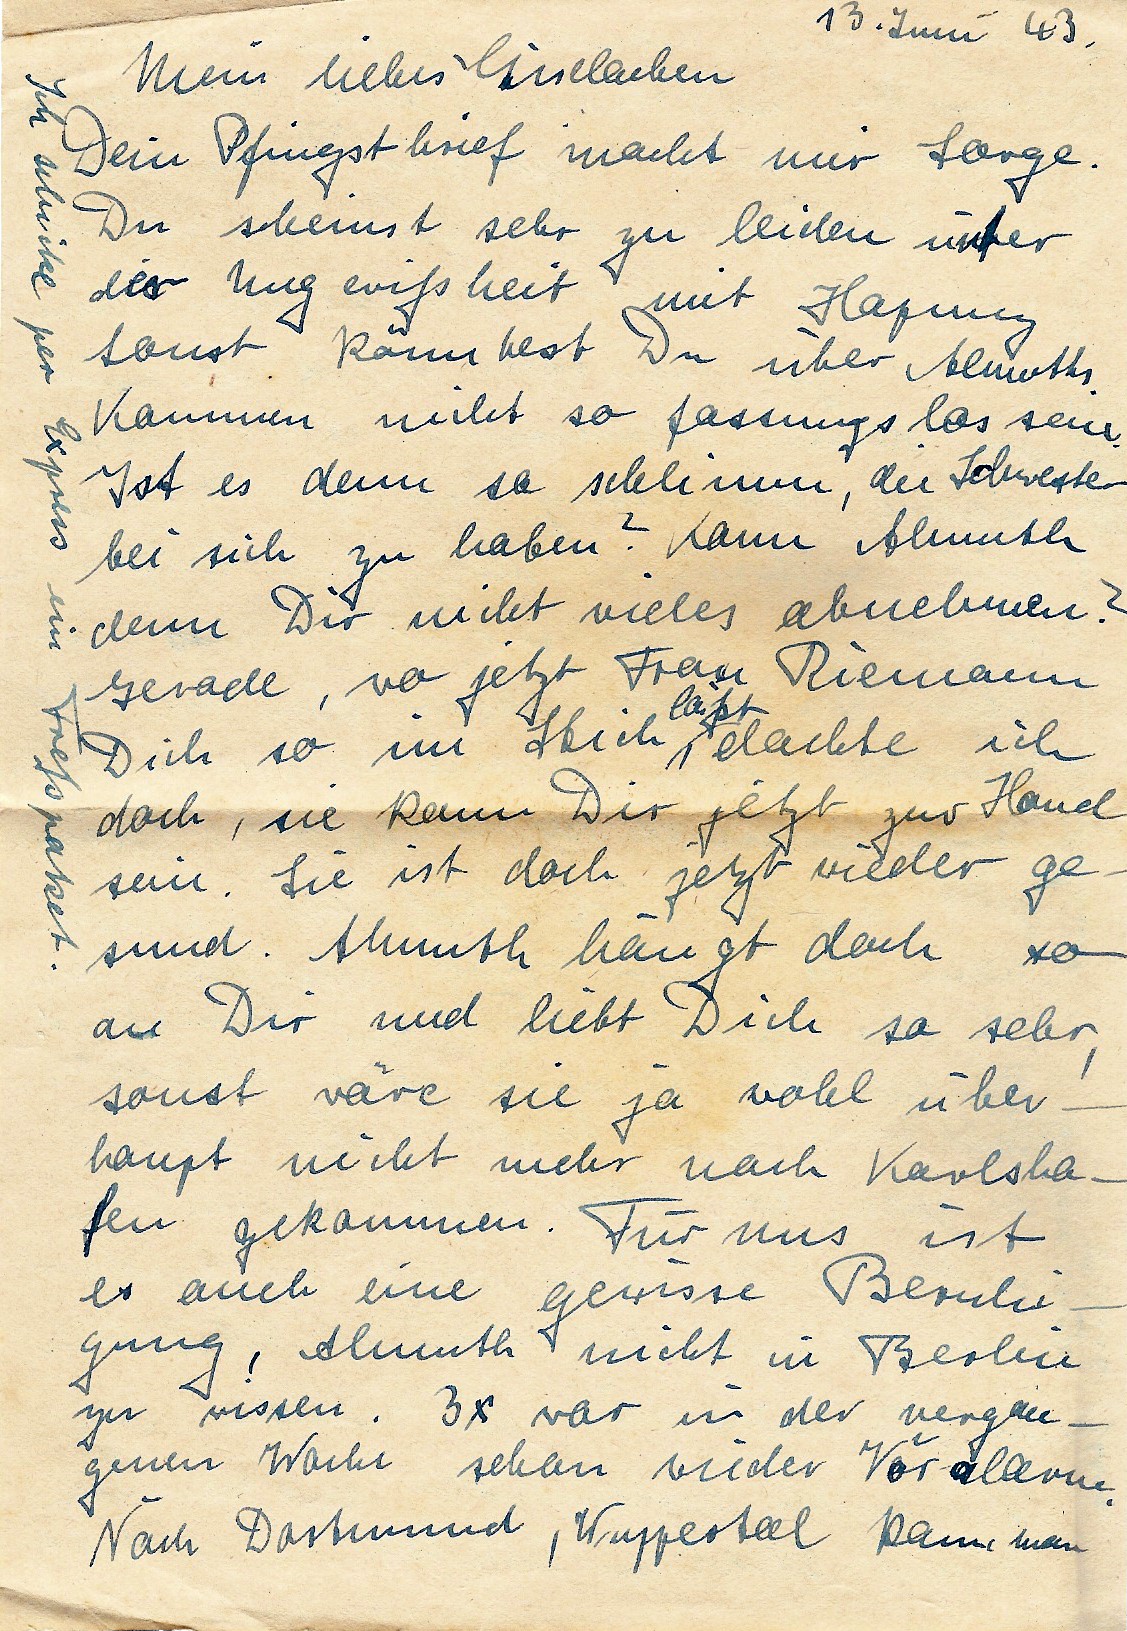 13. Juni 43.
Mein liebes Giselachen
Dein Pfingstbrief macht mir Sorge.
Du scheinst sehr zu leiden unter
der Ungewißheit mit
sonst könntest Du über Almuths
Kommen nicht so fassungslos sein.
Ist es denn so schlimm, die Schwester
bei sich zu haben? Kann Almuth
denn Dir nicht vieles abnehmen?
Gerade, wo jetzt Frau Riemann
Dich so im Stich läßt, dachte ich
doch, sie kann Dir jetzt zur Hand
sein. Sie ist doch jetzt wieder ge-
sund. Almuth hängt doch so
an Dir und liebt Dich so sehr,
sonst wäre sie ja wohl über-
haupt nicht mehr nach Karlsha-
fen gekommen. Für uns ist
es auch eine gewisse Beruhi-
gung, Almuth nicht in Berlin
zu wissen. 3x war in der vergan-
genen Woche schon wieder Voralarm.
Nach Dortmund, Wuppertal kann man
Ich schicke per Express ein Freßpaket.